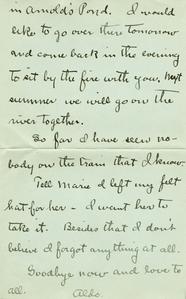 in Arnold's Pond. I would
like to go over there tomorrow
and come back in the evening
to sit by the fire with you. Next
summer we will go on the
river together.
So far I have seen no-
body on the train that I know.
Tell Marie I left my felt
hat for her - I want her to
take it. Besides that I don't
believe I forgot anything at all.
Goodbye now and love to
all. Aldo.